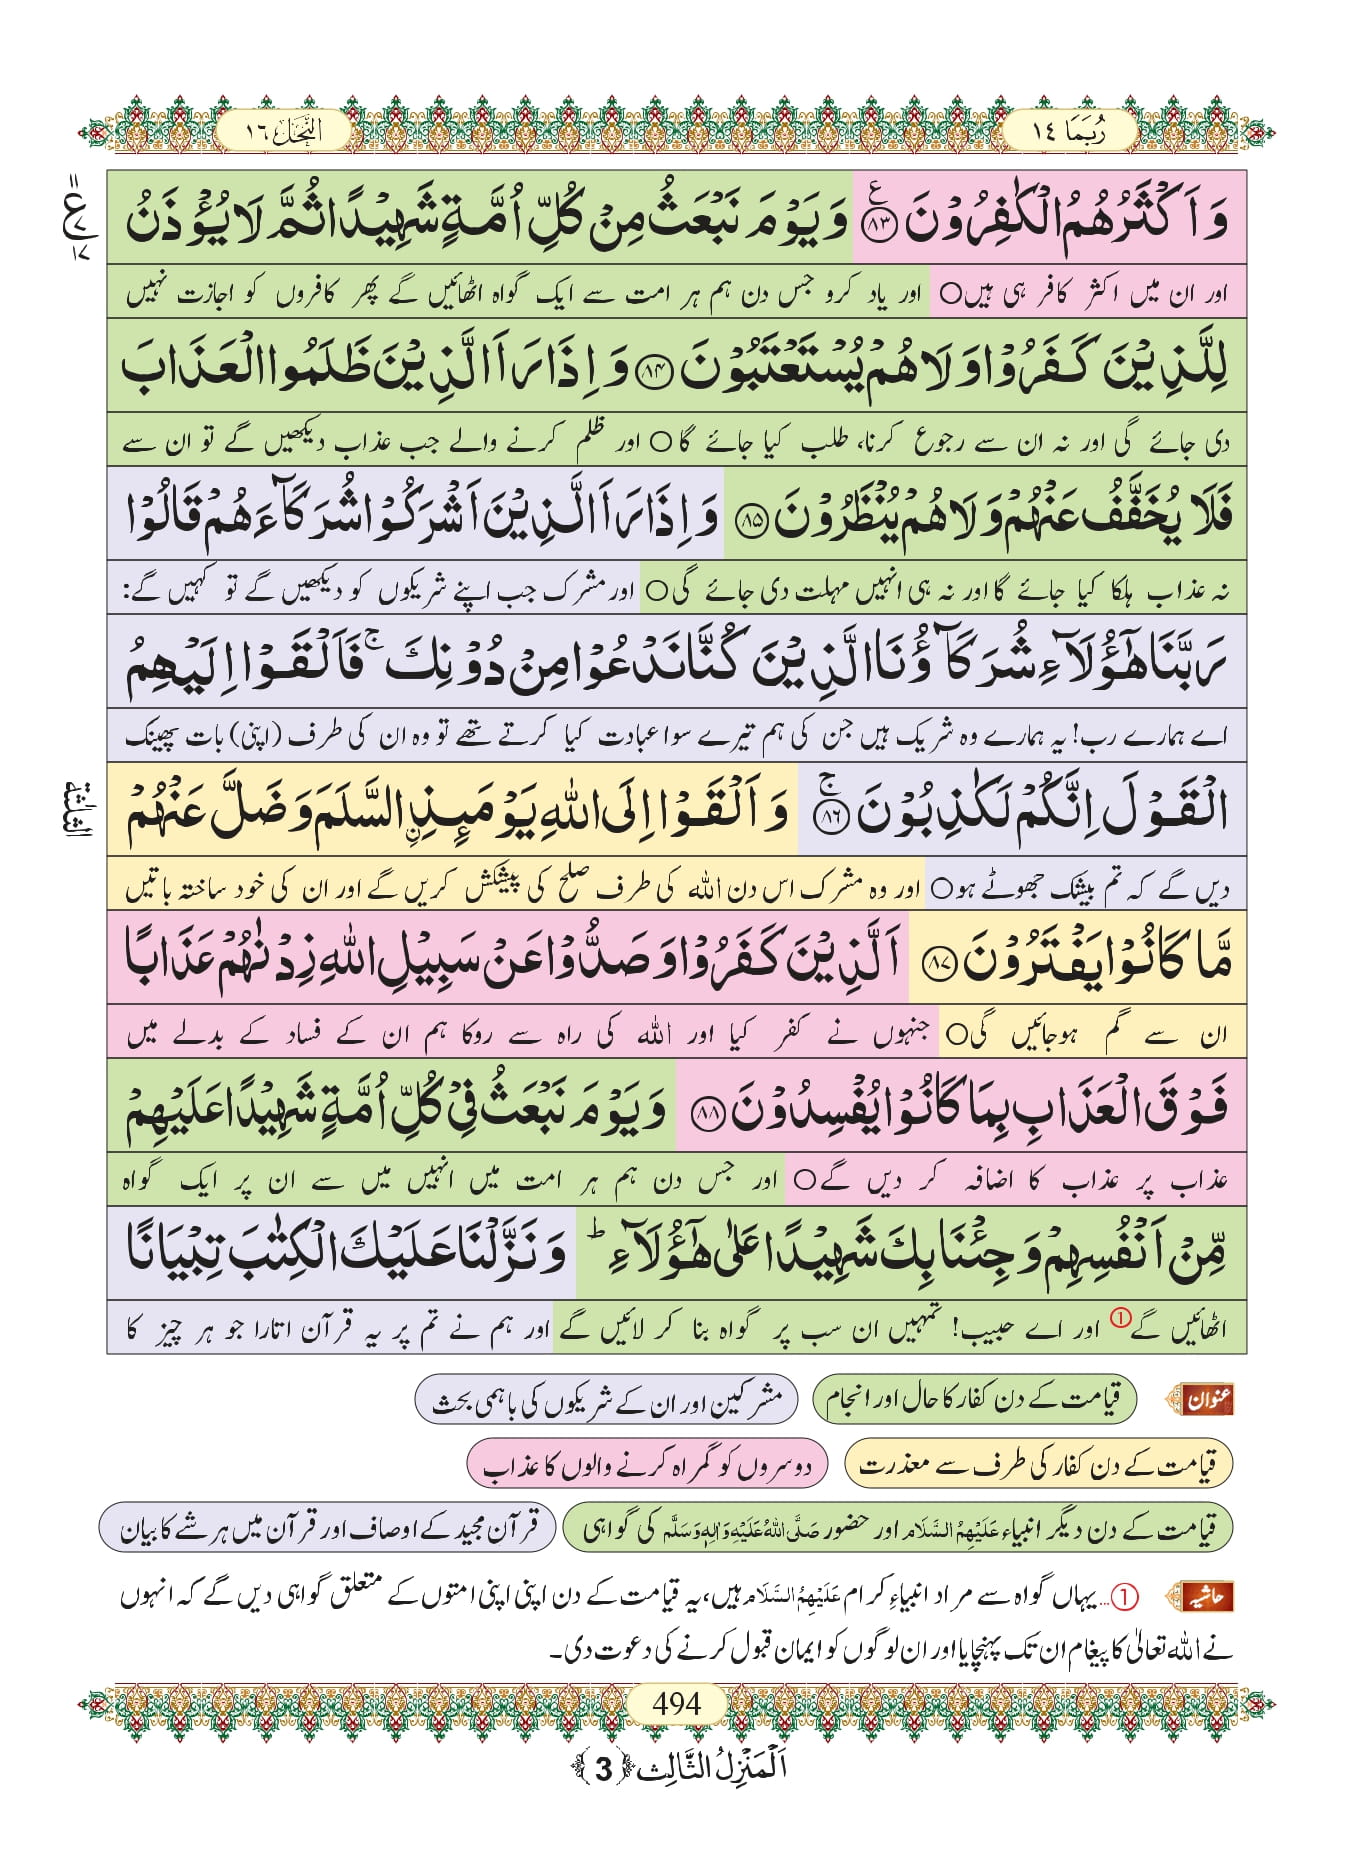 رُبَمَا ١٤
النَّحل ١٦
وَ اَكْثَرُهُمُ الْكٰفِرُوْنَ ﴿۸۳﴾ ع وَ یَوْمَ نَبْعَثُ مِنْ كُلِّ اُمَّةٍ شَهِیْدًا ثُمَّ لَا یُؤْذَنُ
اور ان میں اکثر کافر ہی ہیں○ اور یاد کرو جس دن ہم ہر امت سے ایک گواہ اٹھائیں گے پھر کافروں کو اجازت نہیں
ع ١١ ٧ ١٧
لِلَّذِیْنَ كَفَرُوْا وَ لَا هُمْ یُسْتَعْتَبُوْنَ ﴿۸۴﴾ وَ اِذَا رَاَ الَّذِیْنَ ظَلَمُوا الْعَذَابَ
دی جائے گی اور نہ ان سے رجوع کرنا، طلب کیا جائے گا○ اور ظلم کرنے والے جب عذاب دیکھیں گے تو ان سے
فَلَا یُخَفَّفُ عَنْهُمْ وَ لَا هُمْ یُنْظَرُوْنَ ﴿۸۵﴾ وَ اِذَا رَاَ الَّذِیْنَ اَشْرَكُوْا شُرَكَآءَهُمْ قَالُوْا
نہ عذاب ہلکا کیا جائے گا اور نہ ہی انہیں مہلت دی جائے گی○ اور مشرک جب اپنے شریکوں کو دیکھیں گے تو کہیں گے:
رَبَّنَا هٰۤؤُلَآءِ شُرَكَآؤُنَا الَّذِیْنَ كُنَّا نَدْعُوْا مِنْ دُوْنِكَ ۚ فَاَلْقَوْا اِلَیْهِمُ
اے ہمارے رب! یہ ہمارے وہ شریک ہیں جن کی ہم تیرے سوا عبادت کیا کرتے تھے تو وہ ان کی طرف (اپنی) بات پھینک
الْقَوْلَ اِنَّكُمْ لَكٰذِبُوْنَ ﴿۸۶﴾ ۚ وَ اَلْقَوْا اِلَى اللّٰهِ یَوْمَىٕذِ ﹰالسَّلَمَ وَ ضَلَّ عَنْهُمْ
الثلثة
دیں گے کہ تم بیشک جھوٹے ہو○ اور وہ مشرک اس دن اللہ کی طرف صلح کی پیشکش کریں گے اور ان کی خود ساختہ باتیں
مَّا كَانُوْا یَفْتَرُوْنَ ﴿۸۷﴾ اَلَّذِیْنَ كَفَرُوْا وَ صَدُّوْا عَنْ سَبِیْلِ اللّٰهِ زِدْنٰهُمْ عَذَابًا
ان سے گم ہوجائیں گی○ جنہوں نے کفر کیا اور اللہ کی راہ سے روکا ہم ان کے فساد کے بدلے میں
فَوْقَ الْعَذَابِ بِمَا كَانُوْا یُفْسِدُوْنَ ﴿۸۸﴾ وَ یَوْمَ نَبْعَثُ فِیْ كُلِّ اُمَّةٍ شَهِیْدًا عَلَیْهِمْ
عذاب پر عذاب کا اضافہ کر دیں گے○ اور جس دن ہم ہر امت میں انہیں میں سے ان پر ایک گواہ
مِّنْ اَنْفُسِهِمْ وَ جِئْنَا بِكَ شَهِیْدًا عَلٰى هٰۤؤُلَآءِ ؕ وَ نَزَّلْنَا عَلَیْكَ الْكِتٰبَ تِبْیَانًا
اٹھائیں گے① اور اے حبیب! تمہیں ان سب پر گواہ بنا کر لائیں گے اور ہم نے تم پر یہ قرآن اتارا جو ہر چیز کا
عنوان قیامت کے دن کفار کا حال اور انجام مشرکین اور ان کے شریکوں کی باہمی بحث
قیامت کے دن کفار کی طرف سے معذرت دوسروں کو گمراہ کرنے والوں کا عذاب
قیامت کے دن دیگر انبیاء عَلَیْهِمُ السَّلَام اور حضور صَلَّی اللهُ عَلَیْهِ وَاٰلِهٖ وَسَلَّم کی گواہی قرآنِ مجید کے اوصاف اور قرآن میں ہر شے کا بیان
حاشیہ ①...یہاں گواہ سے مراد انبیاءِ کرام عَلَیْهِمُ السَّلَام ہیں، یہ قیامت کے دن اپنی اپنی امتوں کے متعلق گواہی دیں گے کہ انہوں
نے اللہ تعالیٰ کا پیغام ان تک پہنچایا اور ان لوگوں کو ایمان قبول کرنے کی دعوت دی۔
494
اَلْمَنْزِلُ الثَّالِث ﴿3﴾